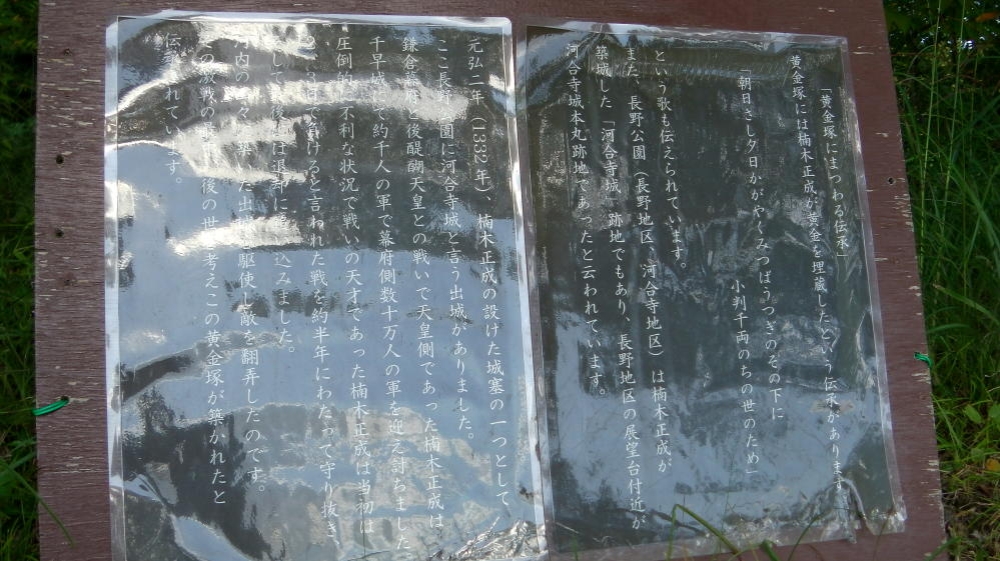 「黄金塚にまつわる伝承」
黄金塚には楠木正成が黄金を埋蔵したという伝承があります
「朝日さし夕日かがやくみつばうつぎのその下に
小判千両のちの世のため」
という歌も伝えられています。
また、長野公園（長野地区、河合寺地区）は楠木正成が
築城した「河合寺城」跡地でもあり、長野地区の展望台付近が
河合寺城本丸跡地であったと云われています。
元弘二年（1332年）、楠木正成の設けた城塞の一つとして
ここ長野公園に河合寺城と言う出城がありました。
鎌倉幕府と後醍醐天皇との戦いで天皇側であった楠木正成は
千早城で約千人の軍で幕府側数十万人の軍を迎え討ちました
圧倒的 不利な状況で戦いの天才であった楠木正成は当初は
3日で負けると言われた戦を約半年にわたって守り抜き
して 後 は退却に 込みました。
内の 々 築いた出城 駆使し敵を翻弄したのです。
の激戦の 後の世 考えこの黄金塚が築かれたと
伝 られています。